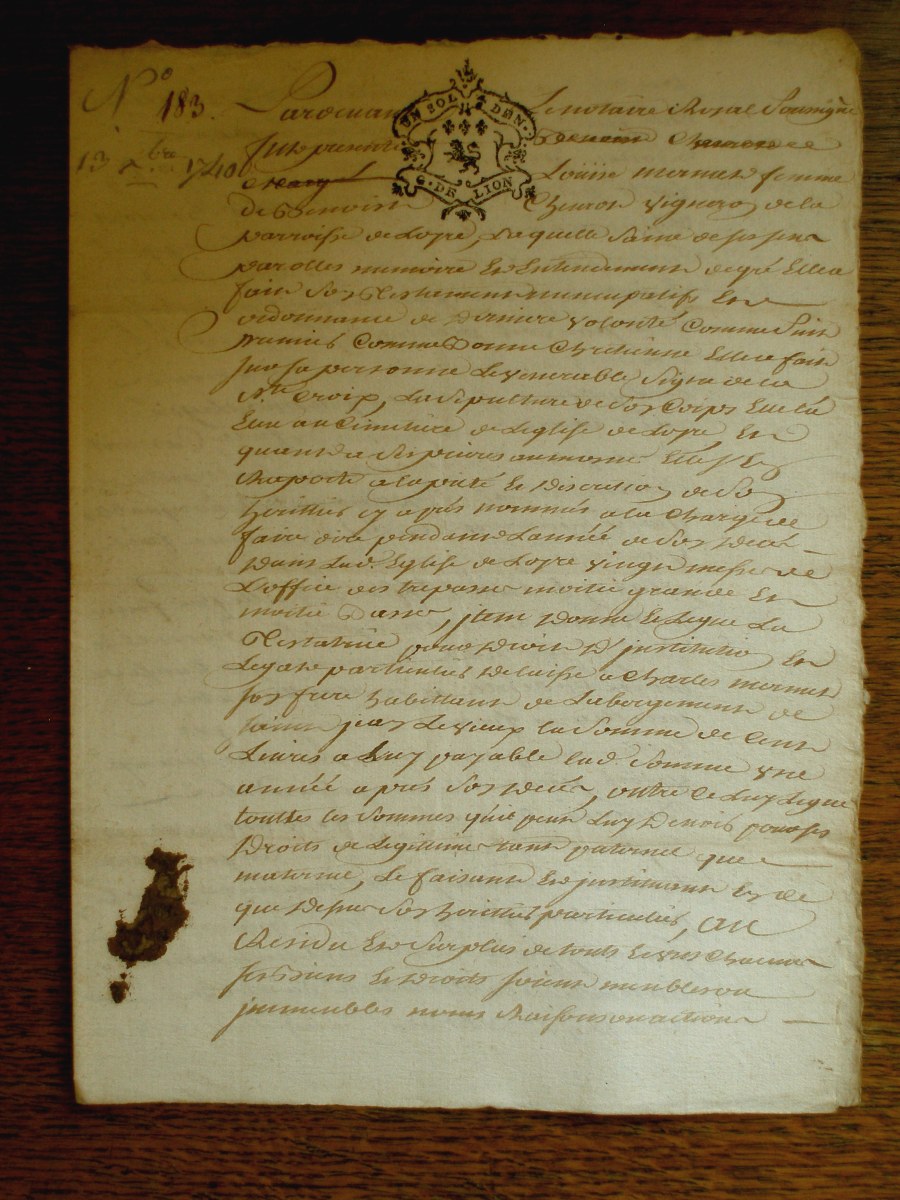 N.º 183.
13 7bre 1740
UN SOL 4 DEN.
G. DE LION
Pardevant Le notaire Royal Soussigné
fut presente
Louise mermet femme
de Benoist Cheuron vigneron de la
parroisse de Loyre, Laquelle Saine de ses sens
parolles memoire Et Entendement de gré Elle a
fait Son Testament nuncupatif Et
ordonnance de Derniere volonté Comme Suit
premier Comme Bonne Chretienne Elle a fait
sur sa personne Le venerable Signe de la
Ste Croix, La Sepulture de Son Corps Elle la
Elue au Cimetiere de L'eglise de Loyre Et
quand a Ses prieres aumone Elle s'En
Raporte a la pieté Et Discretion de Son
heritier cy apres nommés a la Charge de
faire dire pendant L'année de Son Decé
Dans Lad. Eglise de Loyre vingt messe de
L'office des trepassé moitié grande Et
moitié Basse, jtem Donne Et Legue La
Testatrice pour Droit D'jnstitution Et
Legat particulier Delaisse a Charles mermet
son frere habittant de Labergement de
jean Le vieux la Somme de Cent
Livres a Luy payable lad. Somme une
année apres Son Decés, outre Ce Luy Legue
touttes les Sommes qu'il peut Luy Devoir pour ses
Droits de Legitime tant paternel que
maternel, Le faisant Et jnstituant
que Dessus Son heritier particulier, Au
Residu Et Surplus de touts Et uns Chacuns
ses Biens Et Droits soient meubles ou
jmmeubles noms Raisons ou actions